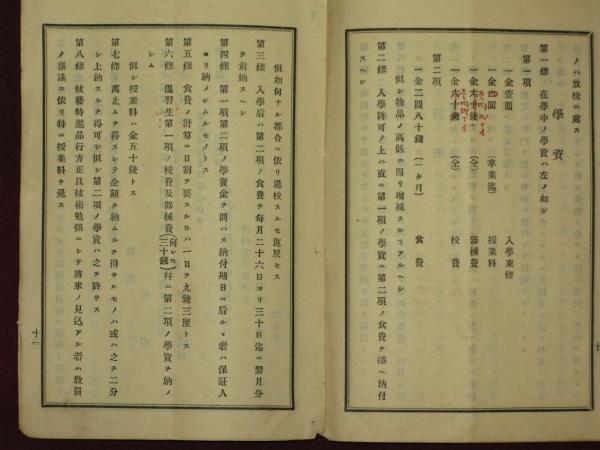 ノハ放校ニ處ス
學資
第一條 在學中ノ學資ハ左ノ如シ
第一項
一金壹圓 入學束修
一金四圓 (卒業迄) 授業料
一金六十錢 (仝) 器械費
一金六十錢 (仝) 校費
第二項
一金二圓八十錢 (一ケ月) 食費
但シ物品ノ高低ニ因リ增減スルヿアルヘシ
第二條 入學許可ノ上ハ直ニ第一項ノ學資ニ第二項ノ食費ヲ添ヘ納付
スヘシ
但如何ナル都合ニ依リ退校スルモ返戻セス
第三條 入學后ハ第二項ノ食費ヲ每月二十六日ヨリ三十日迄ニ翌月分
ヲ前納スヘシ
第四條 第一項第二項ノ學資金ヲ問ハス納付期日ニ后ルヽ者ハ保証人
ヨリ納メシムルモノトス
第五條 食費ノ計算ニ日割ヲ要スル片ハ一日ヲ九錢三厘トス
第六條 溫習生第一項ノ校費及器械費(何レモ三十錢)幷ニ第二項ノ學資ヲ納メ
シム
但シ授業料ハ金五十錢トス
第七條 萬止ムヲ得スシテ全額ヲ納ムルヲ得サルモノハ或ハ之ヲ二分
シ上納スルヲ得可シ但シ第二項ノ學資ハ之ヲ許サス
第八條 技藝特選品行方正且技術勉强ニシテ將來ノ見込アル者ハ敎員
ノ稟議ニ依リ特ニ授業料ヲ免ス
十二